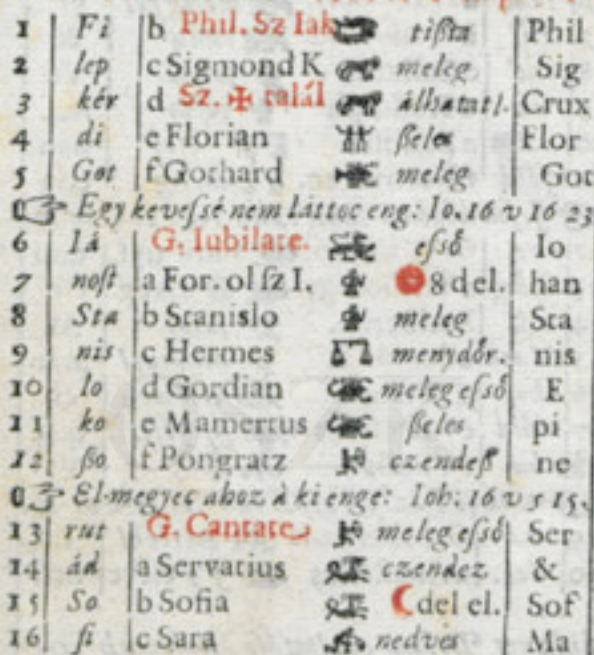 1 Fi b Phil. Sz Iak tißta Phil
2 lep c Sigmond K meleg Sig
3 kér d Sz. ✠ talál álhatatl. Crux
4 di e Florian ßeles Flor
5 Got f Gothard meleg Got
☞ Egy keveſsé nem láttoc eng: Io. 16 v 16 23
6 Iá G. Iubilate. eſső Io
7 noſt a For. ol ſz I. 8 del. han
8 Sta b Stanislo meleg Sta
9 nis c Hermes ♎ menydőr. nis
10 Io d Gordian meleg eſső E
11 ko e Mamertus ßeles pi
12 ßo f Pongratz czendeß ne
☞ El-megyec ahoz à ki enge: Ioh: 16 v 5 15.
13 rut G. Cantate meleg eſső Ser
14 ád a Servatius czendez &
15 So b Sofia ☾ del el. Sof
16 fi c Sara nedves Ma